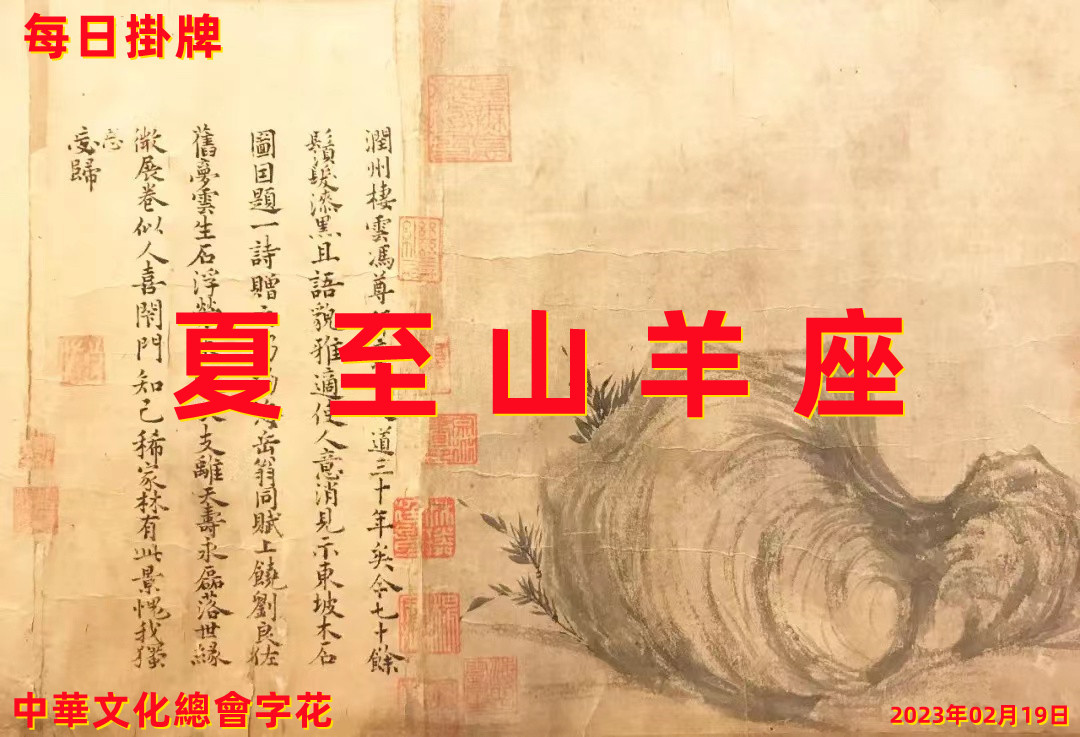 每日掛牌
潤州棲雲馮尊道三十年矣今七十餘
鬚髮漆黑且語貌雅適使人意消見示東坡木石
圖因題一詩贈岳翁同賦上饒劉良佐
舊夢雲生石浮支離天壽永磊落世緣
微展卷似人喜閉門知己稀家林有此景愧我獨
忘歸
夏至山羊座
中華文化總會字花
2023年02月19日